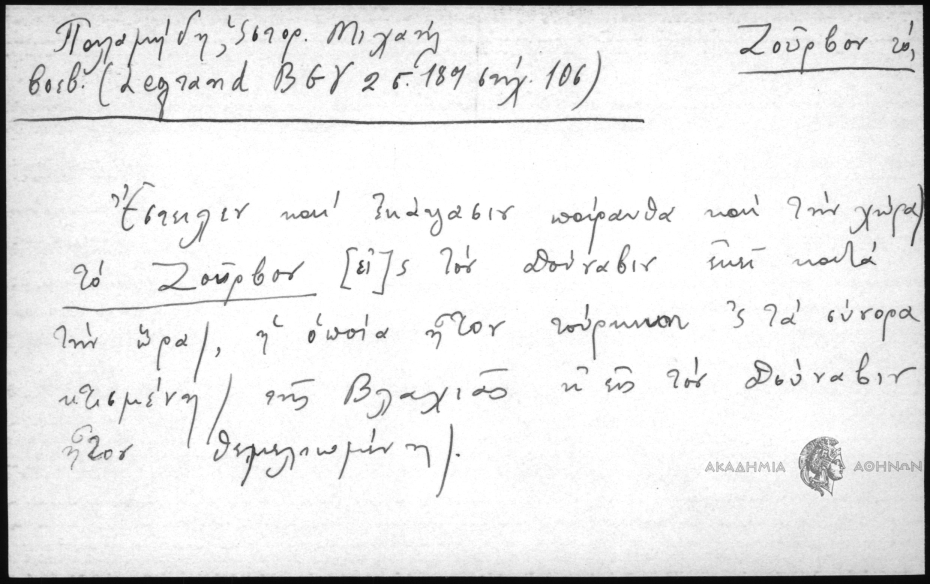 Παλαμήδη, Ἱστορ. Μιχαὴ
βοεβ. (Legrand BGV 2 σ. 189 στίχ. 106)
Ζοῦρβον τό,
Ἔστειλεν καὶ ἐχάλασιν τὴν χώρα /
τὸ Ζοῦρβον [εἰ]ς τὸν Δούναβιν ἐκεῖ κατὰ
τὴν ὥρα /, ἡ ὁποία ἦτον τούρκικη ς τὰ σύνορα
κτισμένη / τῆς Βλαχιᾶς κ' εἰς τὸν Δούναβιν
ἦτον θεμελιωμένη /.
ΑΚΑΔΗΜΙΑ ΑΘΗΝΩΝ